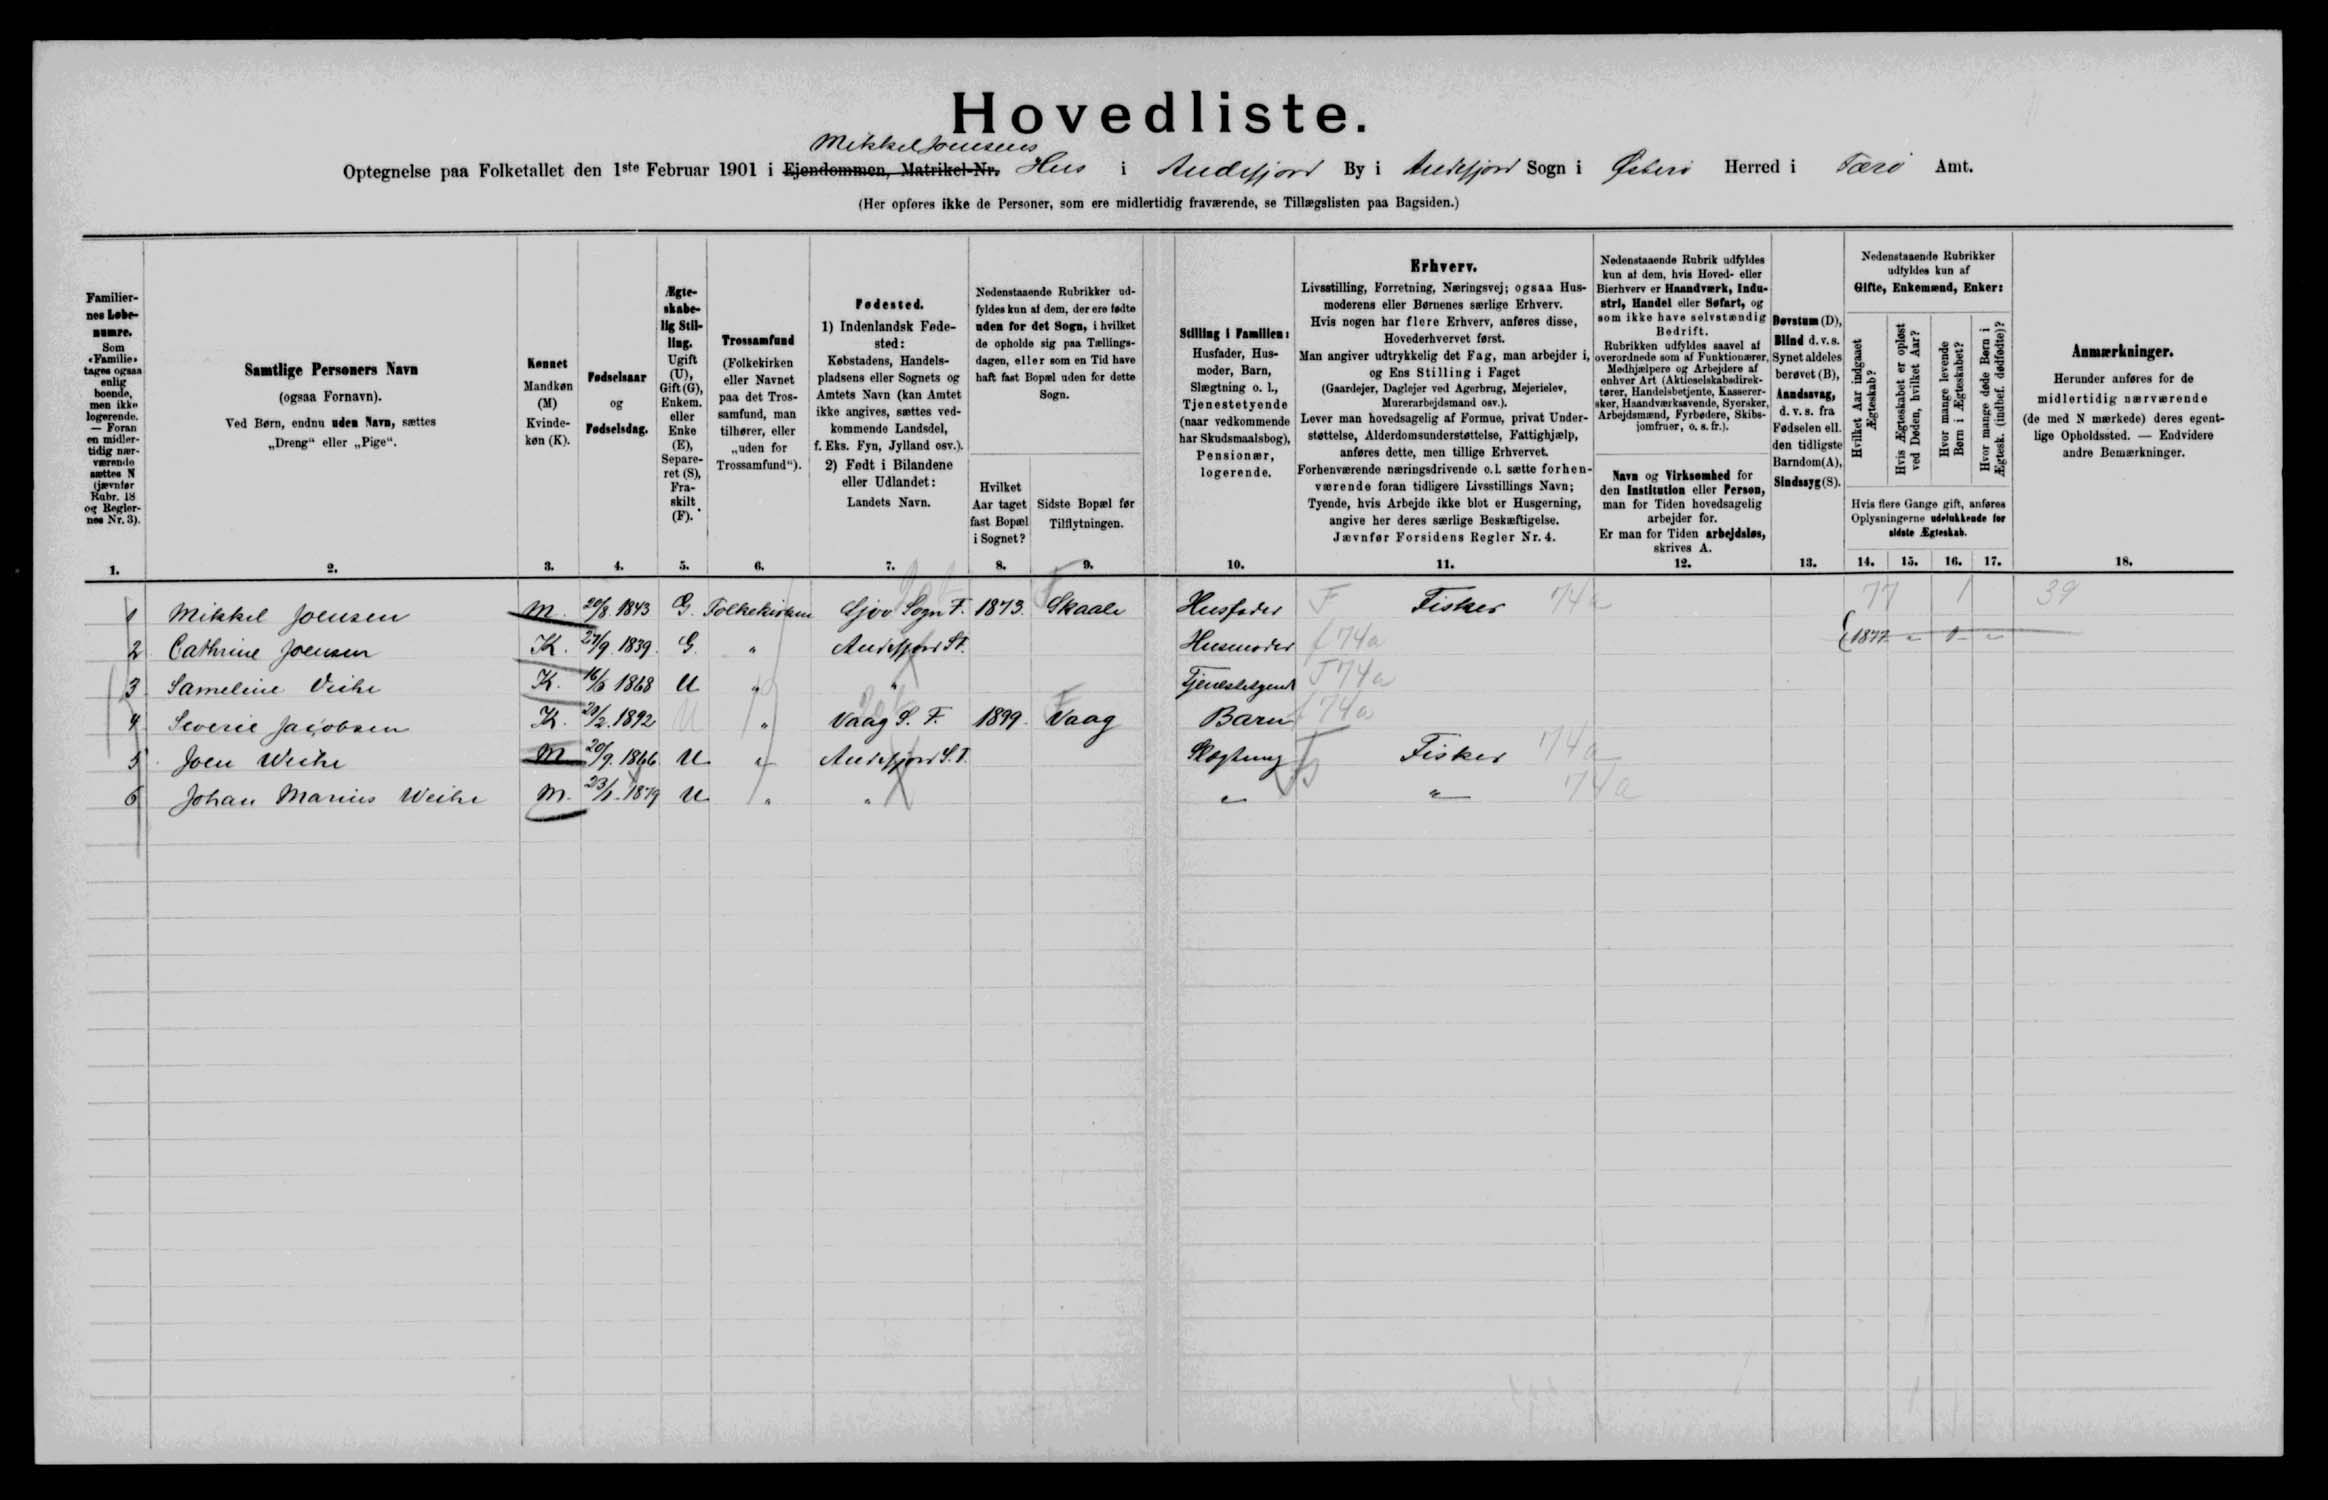 Hovedliste.
Mikkel Joensens
Optegnelse paa Folketallet den 1ste Februar 1901 i Ejendommen, Matrikel-Nr. Hus i Andefjord By i Andefjord Sogn i Østerø Herred i Færø Amt.
(Her opføres ikke de Personer, som ere midlertidig fraværende, se Tillægslisten paa Bagsiden.)
Familier-
nes Løbe-
numre.
Som
«Familie»
tages ogsaa
enlig
boende,
men ikke
logerende.
— Foran
en midler-
tidig nær-
værende
sættes N
(jævnfør
Rubr. 18
og Regler-
nes Nr. 3).
1.
Samtlige Personers Navn
(ogsaa Fornavn).
Ved Børn, endnu uden Navn, sættes
„Dreng“ eller „Pige“.
2.
Kønnet
Mandkøn
(M)
Kvinde-
køn (K).
3.
Fødselsaar
og
Fødselsdag.
4.
Ægte-
skabe-
lig Stil-
ling.
Ugift
(U),
Gift (G),
Enkem.
eller
Enke
(E),
Separe-
ret (S),
Fra-
skilt
(F).
5.
Trossamfund
(Folkekirken
eller Navnet
paa det Tros-
samfund, man
tilhører, eller
„uden for
Trossamfund“).
6.
Fødested.
1) Indenlandsk Føde-
sted:
Købstadens, Handels-
pladsens eller Sognets og
Amtets Navn (kan Amtet
ikke angives, sættes ved-
kommende Landsdel,
f. Eks. Fyn, Jylland osv.).
2) Født i Bilandene
eller Udlandet:
Landets Navn.
7.
Nedenstaaende Rubrikker ud-
fyldes kun af dem, der ere fødte
uden for det Sogn, i hvilket
de opholde sig paa Tællings-
dagen, eller som en Tid have
haft fast Bopæl uden for dette
Sogn.
Hvilket
Aar taget
fast Bopæl
i Sognet?
8.
Sidste Bopæl før
Tilflytningen.
9.
Stilling i Familien:
Husfader, Hus-
moder, Barn,
Slægtning o. l.,
Tjenestetyende
(naar vedkommende
har Skudsmaalsbog),
Pensionær,
logerende.
10.
Erhverv.
Livsstilling, Forretning, Næringsvej; ogsaa Hus-
moderens eller Børnenes særlige Erhverv.
Hvis nogen har flere Erhverv, anføres disse,
Hovederhvervet først.
Man angiver udtrykkelig det Fag, man arbejder i,
og Ens Stilling i Faget
(Gaardejer, Daglejer ved Agerbrug, Mejerielev,
Murerarbejdsmand osv.).
Lever man hovedsagelig af Formue, privat Under-
støttelse, Alderdomsunderstøttelse, Fattighjælp,
anføres dette, men tillige Erhvervet.
Forhenværende næringsdrivende o.l. sætte forhen-
værende foran tidligere Livsstillings Navn;
Tyende, hvis Arbejde ikke blot er Husgerning,
angive her deres særlige Beskæftigelse.
Jævnfør Forsidens Regler Nr. 4.
11.
Nedenstaaende Rubrik udfyldes
kun af dem, hvis Hoved- eller
Bierhverv er Haandværk, Indu-
stri, Handel eller Søfart, og
som ikke have selvstændig
Bedrift.
Rubrikken udfyldes saavel af
overordnede som af Funktionærer,
Medhjælpere og Arbejdere af
enhver Art (Aktieselskabsdirek-
tører, Handelsbetjente, Kasserer-
sker, Haandværkssvende, Syersker,
Arbejdsmænd, Fyrbødere, Skibs-
jomfruer, o. s. fr.).
Navn og Virksomhed for
den Institution eller Person,
man for Tiden hovedsagelig
arbejder for.
Er man for Tiden arbejdsløs,
skrives A.
12.
Døvstum (D),
Blind d. v. s.
Synet aldeles
berøvet (B),
Aandssvag,
d. v. s. fra
Fødselen ell.
den tidligste
Barndom(A),
Sindssyg(S).
13.
Nedenstaaende Rubrikker
udfyldes kun af
Gifte, Enkemænd, Enker:
Hvilket Aar indgaaet
Ægteskab?
Hvis Ægteskabet er opløst
ved Døden, hvilket Aar?
Hvor mange levende
Børn i Ægteskabet?
Hvor mange døde Børn i
Ægtesk. (indbef. dødfødte)?
Hvis flere Gange gift, anføres
Oplysningerne udelukkende for
sidste Ægteskab.
14. 15. 16. 17.
Anmærkninger.
Herunder anføres for de
midlertidig nærværende
(de med N mærkede) deres egent-
lige Opholdssted. — Endvidere
andre Bemærkninger.
18.
1 Mikkel Joensen M. 20/8. 1843 G. Folkekirken Sjov Sogn F. 1873. Skaale Husfader F Fisker 74a 77 1 39
2 Cathrine Joensen K. 27/9 1839. G. " Andefjord S.F. Husmoder f 74a 1877 " 1 "
3 Sameline Veihe K. 16/6 1868 U " " Tjenestetyende T 74a
4 Severie Jacobsen K. 20/2. 1892 U " Vaag S. F. 1899. Vaag Barn f 74a
5 Joen Weihe M 20/9. 1866 U " Andefjord S.F. Slægtning Fisker 74a
6 Johan Marius Weihe M. 23/1. 1879 U " " " " 74a